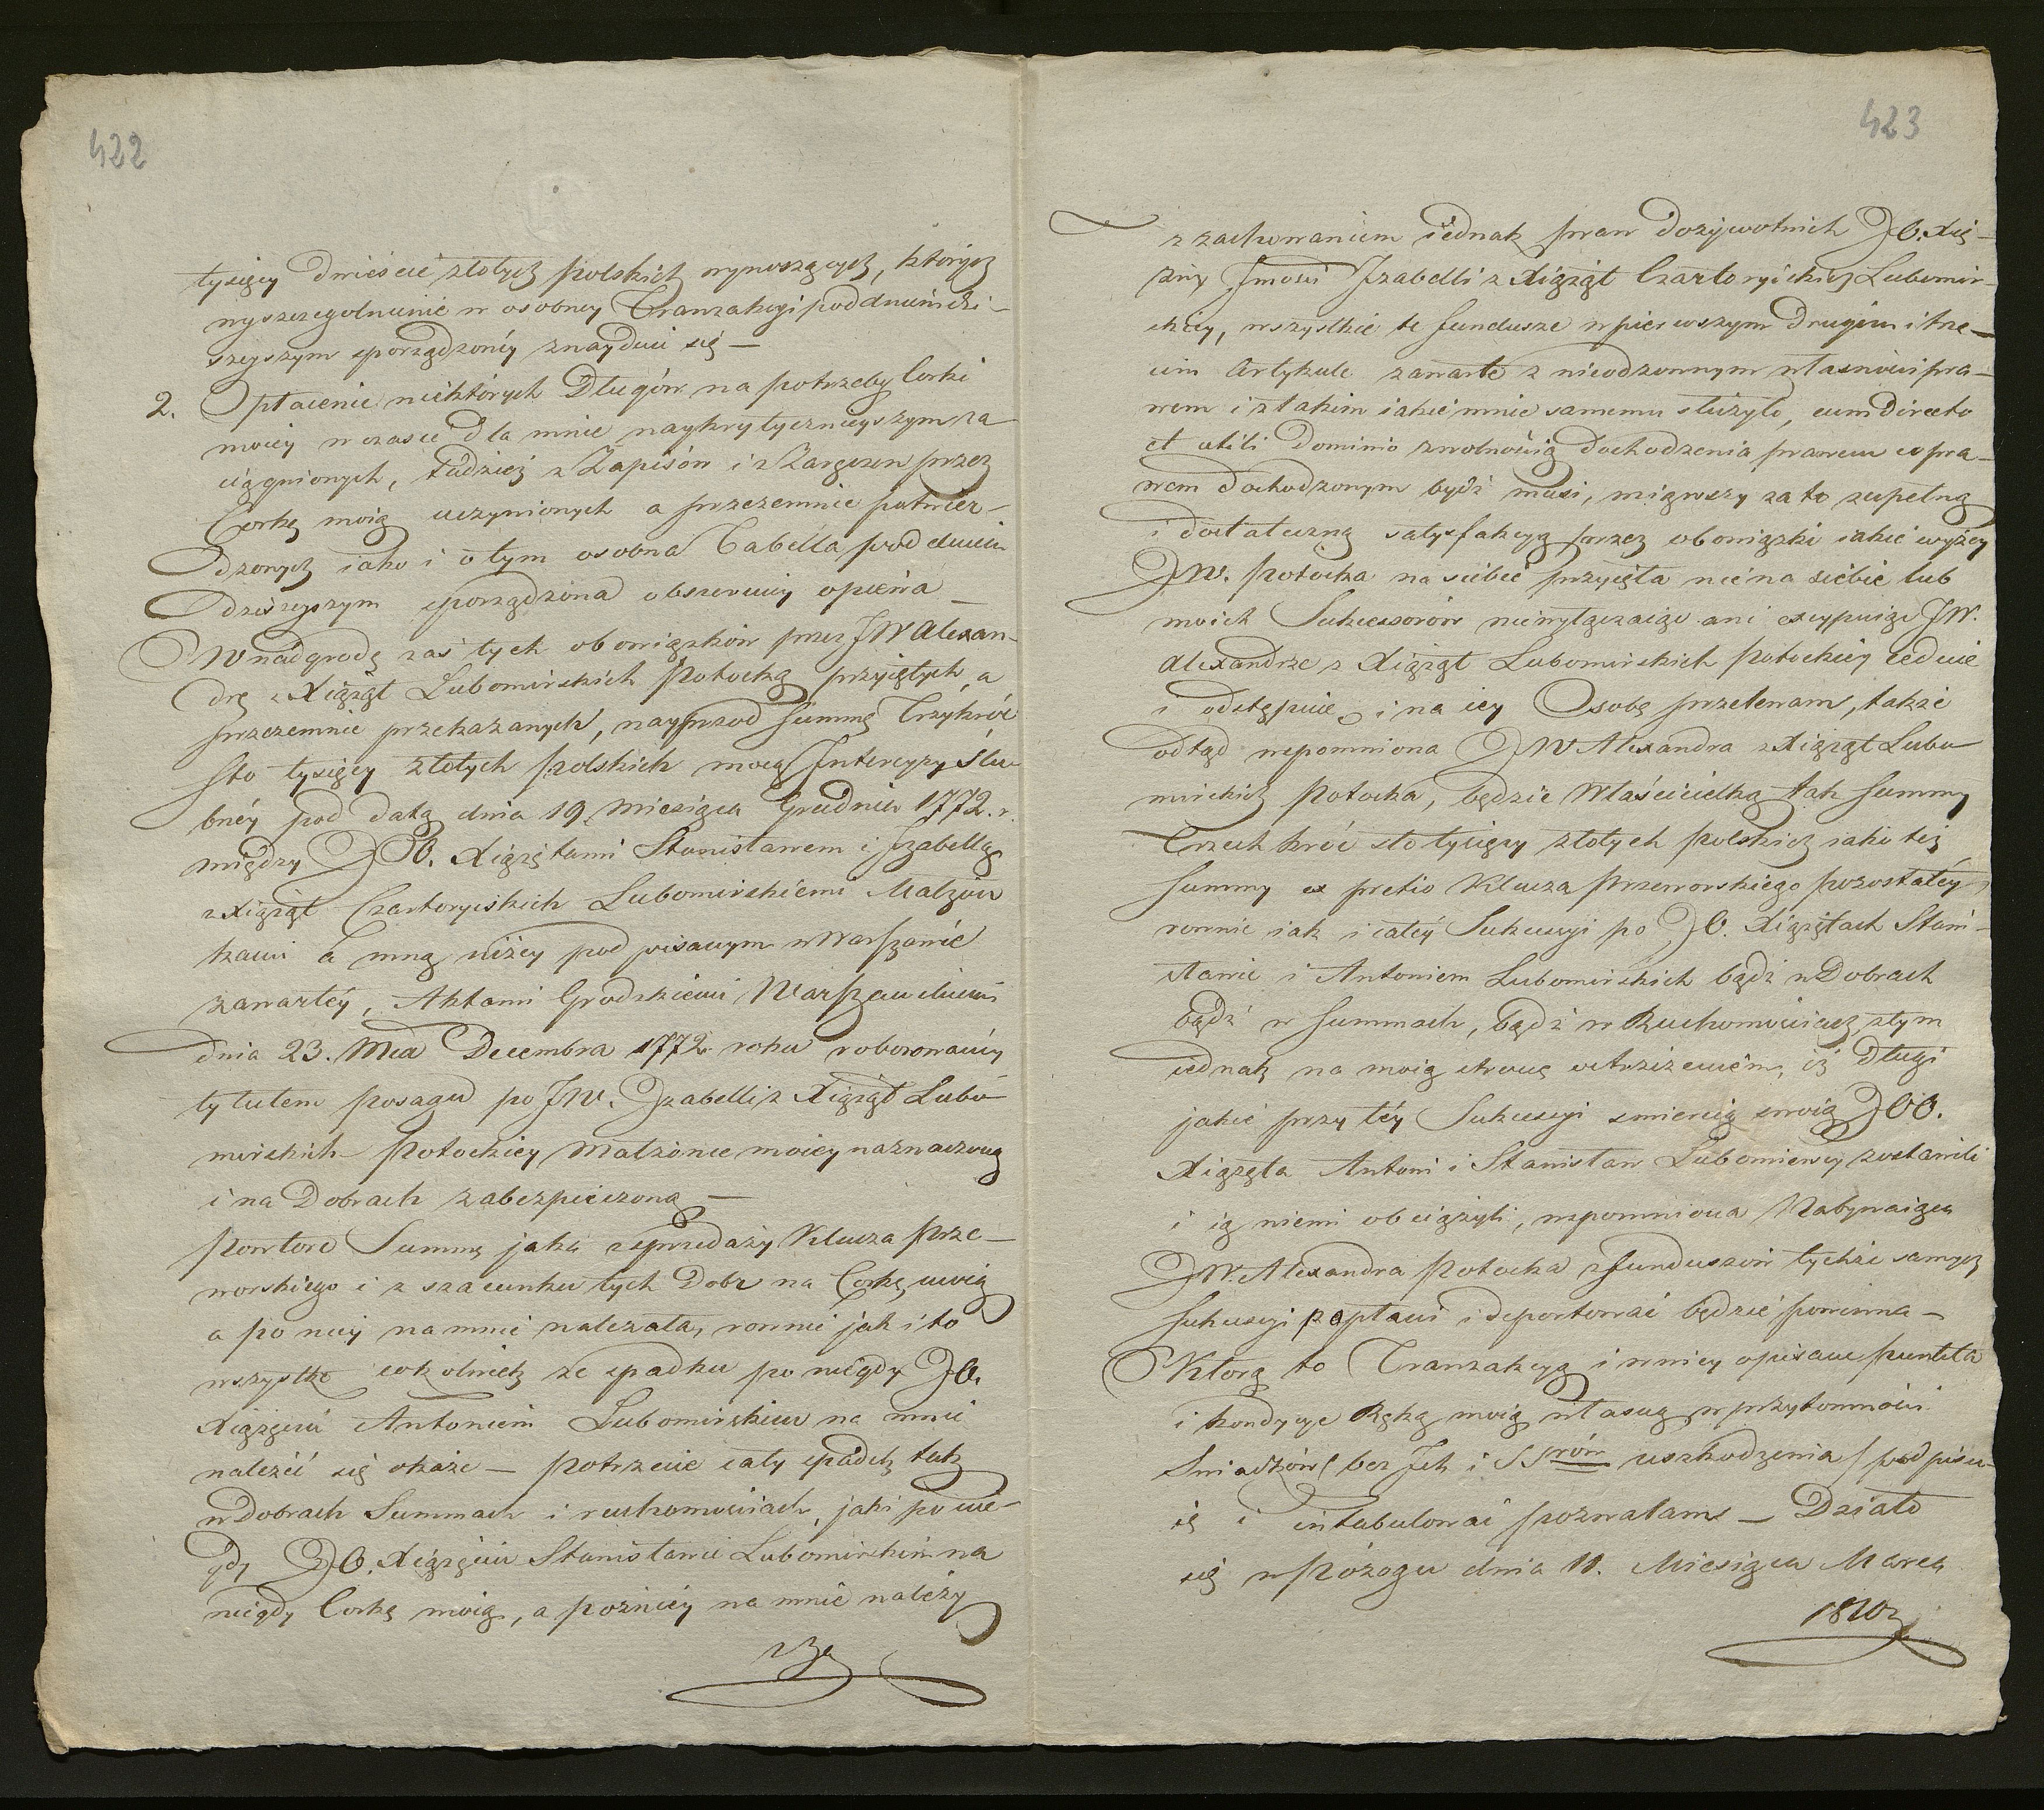 422
tysięcy dwieście złotych polskich wynoszących, których
wyszczegolnienie w osobney Tranzakcyi pod dniem dzi-
szeyszym sporządzoney znayduie się —
2. Opłacenie niektórych Długów na potrzeby Corki
moiey w czasie dla mnie naykrytycznieyszym za-
ciągnionych, tudzież z Zapisów i Kargesen przez
Corkę moią uczynionych a przezemnie potwier-
dzonych iako i o tym osobna Tabella pod dniem
dzisieyszym sporządzona obszerniey opiewa —
W nadgrodę zaś tych obowiązków przez JW Alexan-
drę z Xiążąt Lubomirskich Potocką przyiętych, a
przezemnie przekazanych, nayprzod Summę Trzykroć
sto tysięcy złotych polskich mocą Intercyzy ślu-
bnéy pod datą dnia 19. Miesiąca Grudnia 1772. r.
między JOO. Xiążętami Stanisławem i Izabellą
z Xiążąt Czartoryiskich Lubomirskiemi Małżon-
kami a mną niżey podpisanym w Warszawie
zawartéy, Aktami Grodzkiemi Warszawskiemi
dnia 23. Mca Decembra 1772. roku roborowaney
tytułem posagu po JW. Izabelli z Xiążąt Lubo-
mirskich Potockiey Małżonce moiey naznaczoną
i na Dobrach zabezpieczoną —
Powtore Summę jaka z sprzedaży Klucza Prze-
worskiego i z szacunku tych Dobr na Corkę moią
a po niey na mnie należała, rownie jak i to
wszystko cokolwiek ze spadku po niegdy JO.
Xiążęciu Antonim Lubomirskim na mnie
należeć się okaże — Potrzecie cały spadek tak
w Dobrach Summach i ruchomościach, jaki po nie-
gdy JO. Xiążęciu Stanisławie Lubomirskim na
niegdy Corkę moią, a poźniey na mnie należy
z Za
423
z zachowaniem iednak praw dożywotnich JO. Xię-
żny Jmości Izabelli z Xiążąt Czartoryiskich Lubomir-
skiey, wszystkie te fundusze w pierwszym drugim i trze-
cim Artykule zawarte z nieodzownym własności pra-
wem i z takim iakie mnie samemu służyło, cum directo
et utili Dominio z wolnością dochodzenia prawem co pra-
wem dochodzonym bydź musi, wziąwszy za to zupełną
i dostateczną satysfakcyą przez obowiązki iakie wyżey
JW. Potocka na siebie przyięła nic na siebie lub
moich Sukcessorów niewyłączaiąc ani excypuiąc JW.
Alexandrze z Xiążąt Lubomirskich Potockiey ceduię
i odstępuię, i na iey Osobę przelewam, także
odtąd wspomniona JW Alexandra z Xiążąt Lubo-
mirskich Potocka, będzie Właścicielką tak Summy
Trzech kroć sto tysięcy złotych polskich iako też
Summy ex pretio Klucza Przeworskiego pozostałéy,
rownie iak i całéy Sukcessyi po JO. Xiążętach Stani-
sławie i Antonim Lubomirskich bądź w Dobrach
bądź w Summach, bądź w Ruchomościach, z tym
iednak na moią stronę ostrzeżeniem, iż długi
jakie przy téy Sukcessyi śmiercią swoią JOO.
Xiążęta Antoni i Stanisław Lubomirscy zostawili
i ią niemi obciążyli, wspomniona Nabywaiąca
JW. Alexandra Potocka z funduszow tychże samych
Sukcessyi popłacić i deportować będzie powinna —
Ktorą to Tranzakcyą i w niey opisane punkta
i kondycye Ręką moią własną w przytomności
Świadków (bez Ich i SSrów uszkodzenia) podpisu-
ię i intabulować pozwalam — Działo
się w Pozogu dnia 11. Miesiąca Marca
1810